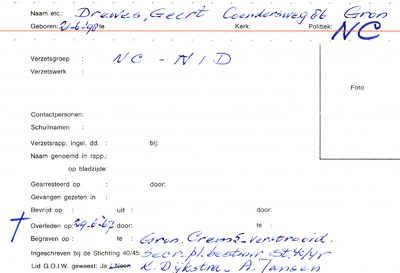 Naam etc.: Drewes, Geert Coendersweg 66 Gron
Geboren: 21-6-'98 te Kerk: Politiek: NC
Verzetsgroep : NC - NID
Verzetswerk :
Foto
Contactpersonen:
Schuilnamen :
Verzetsrapp. ingel. dd. : bij:
Naam genoemd in rapp.:
op bladzijde:
Gearresteerd op : door:
Gevangen gezeten in :
Bevrijd op : uit : door:
† Overleden op: 29-6-'67 door: te:
Begraven op : te : Gron. Crem. - verstrooid.
Ingeschreven bij de Stichting 40/45: Secr. pl. bestuur St. 40/45
Lid G.O.I.W. geweest: Ja / Neen K. Dijkstra - A. Jansen